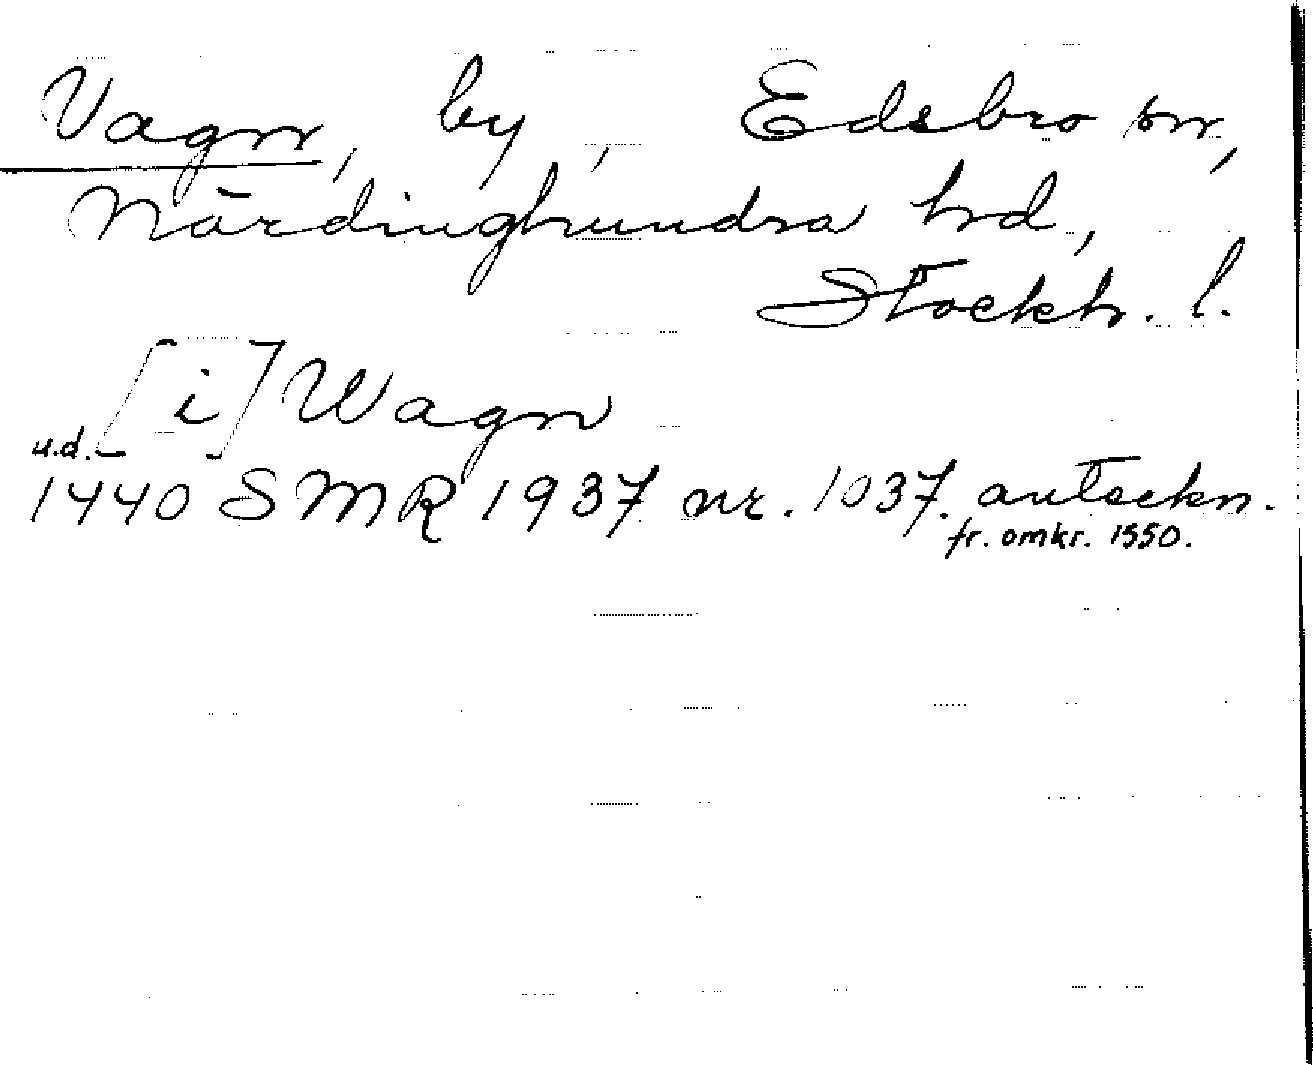 Vagn, by, Edsbro sn,
Närdinghundra hd,
Stockh. l.
[i] Wagn
u.d.
1440 SMR 1937 nr. 1037. anteckn.
fr. omkr. 1550.